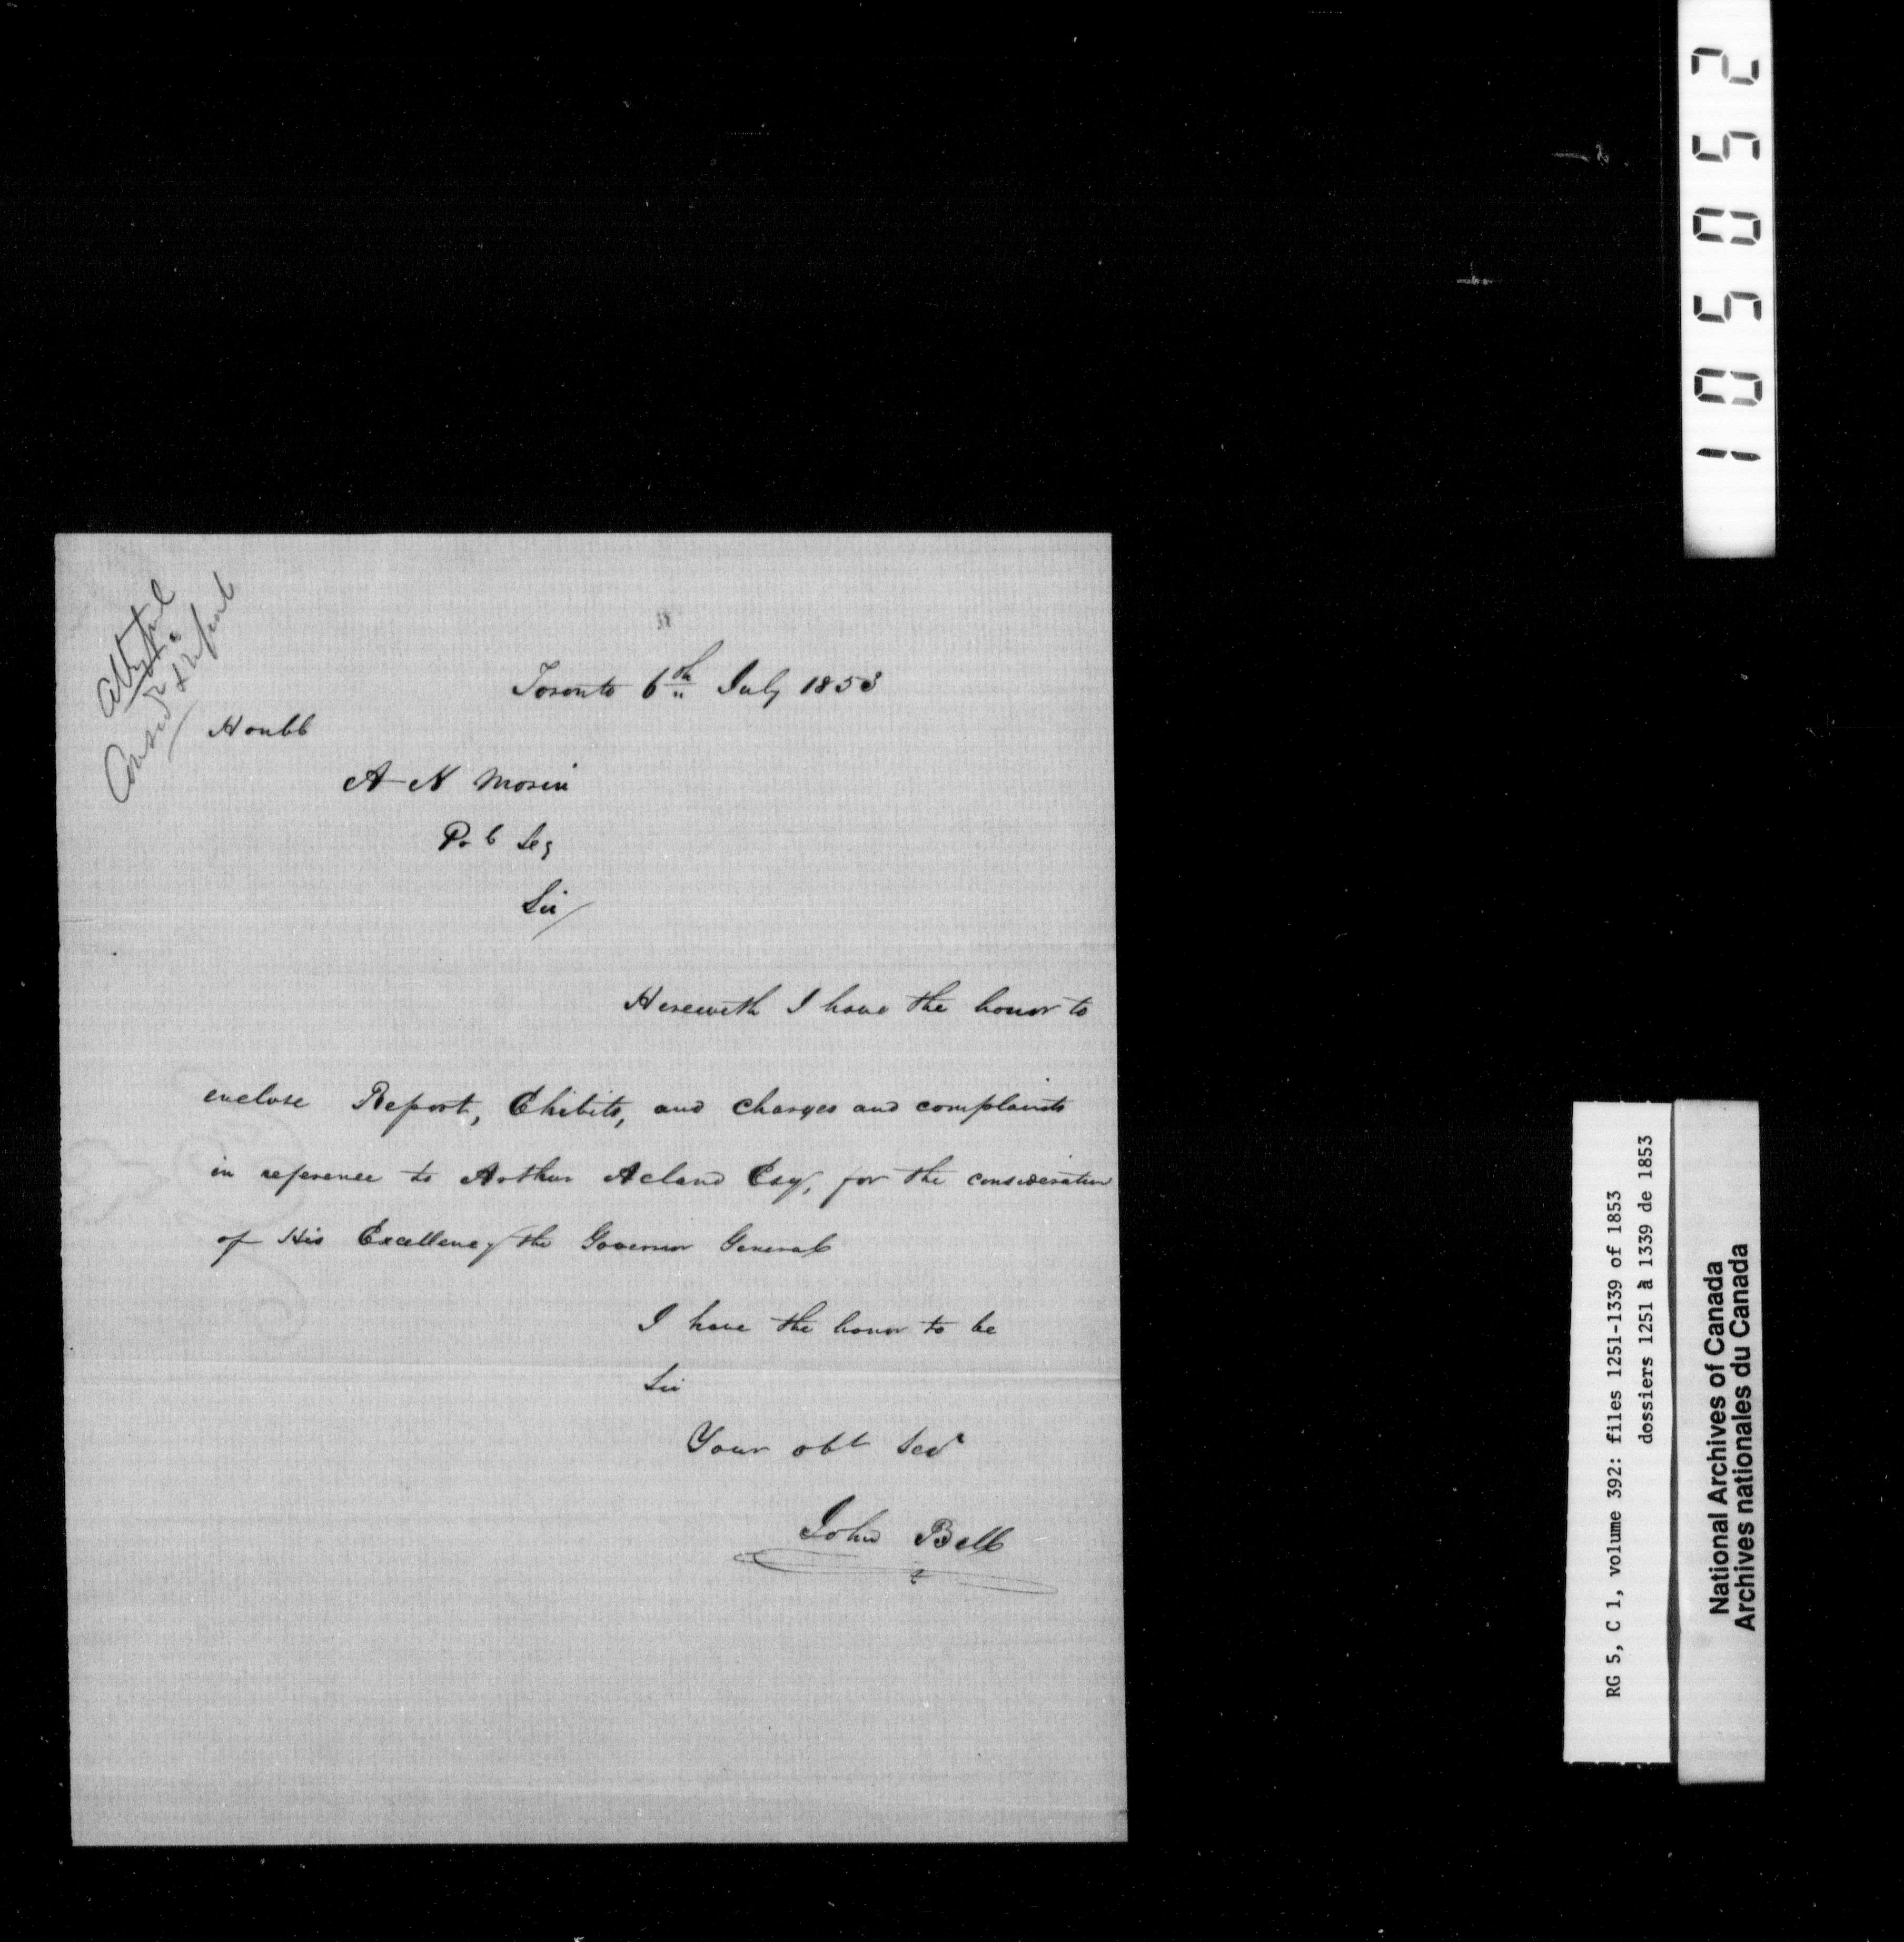 Consid & report
Toronto 6th July 1853
Honbl
A N Morin
Po C Secy
Sir/
Herewith I have the honor to
enclose Report, Ehibits, and charges and complaints
in reference to Arthur Acland Esq, for the consideration
of His Excellency the Governor General
I have the honor to be
Sir
Your obt Sevt
John Bell
105052
RG 5, C 1, volume 392: files 1251-1339 of 1853
dossiers 1251 à 1339 de 1853
National Archives of Canada
Archives nationales du Canada